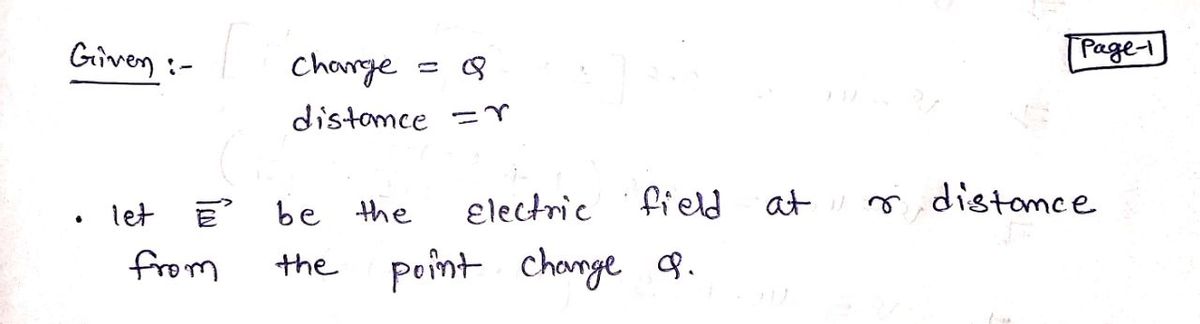 Given :- charge = Q
Page-1
distance = r
• let E⃗ be the Electric field at r distance
from the point charge Q.